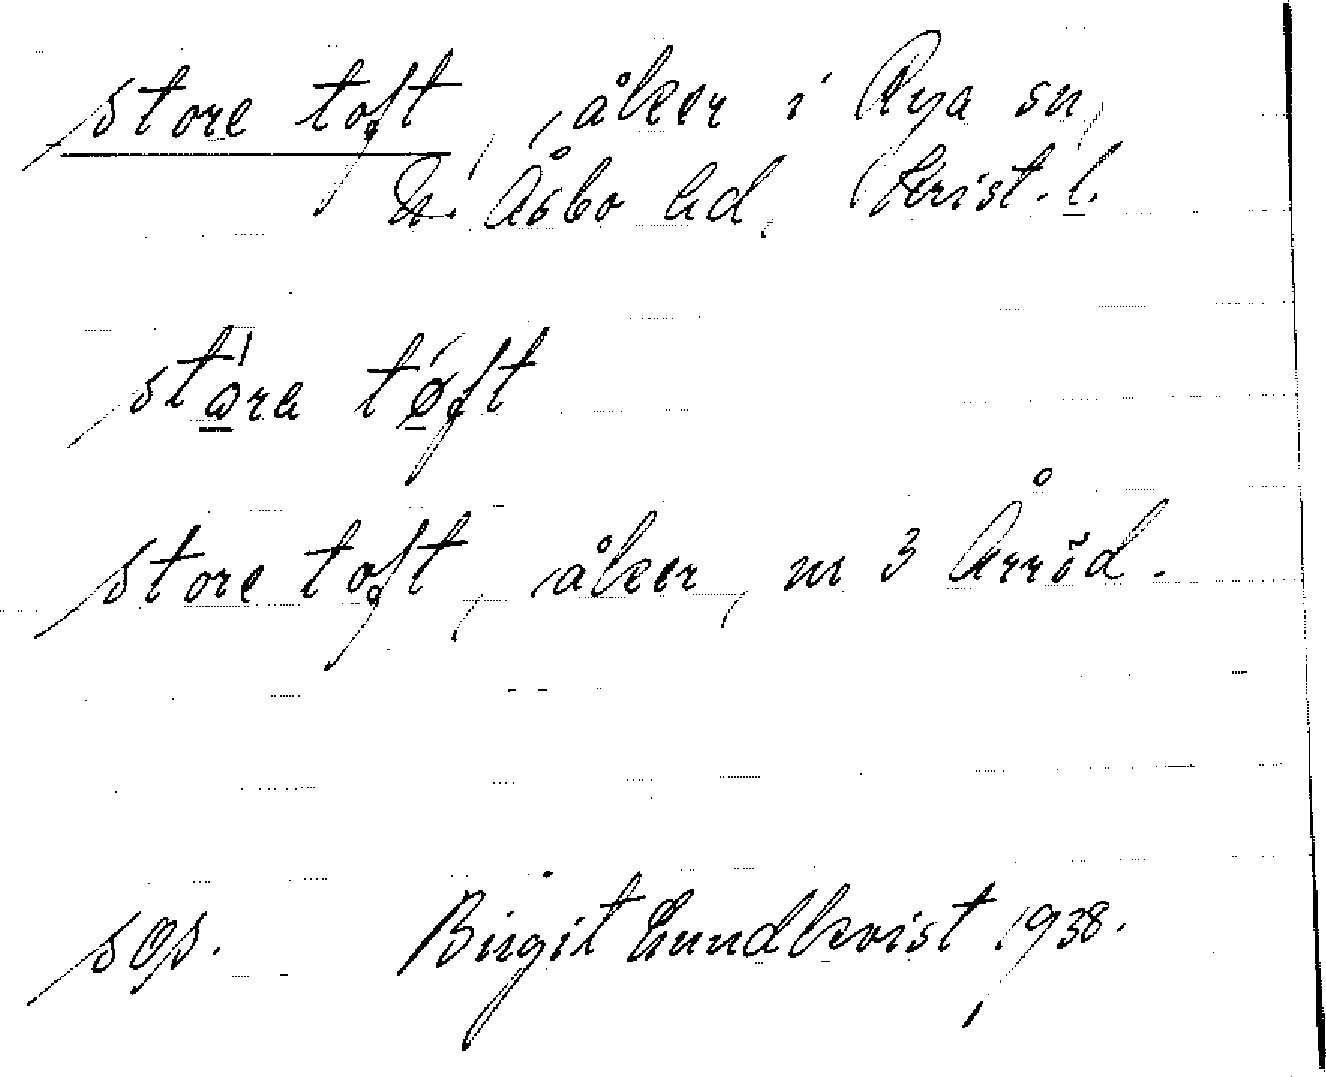 store toft, åker i Rya sn,
N. Åsbo hd, Krist. l.
stora tøft
store toft, åker, nr 3 Årröd.
Birgit Lundkvist 1938.